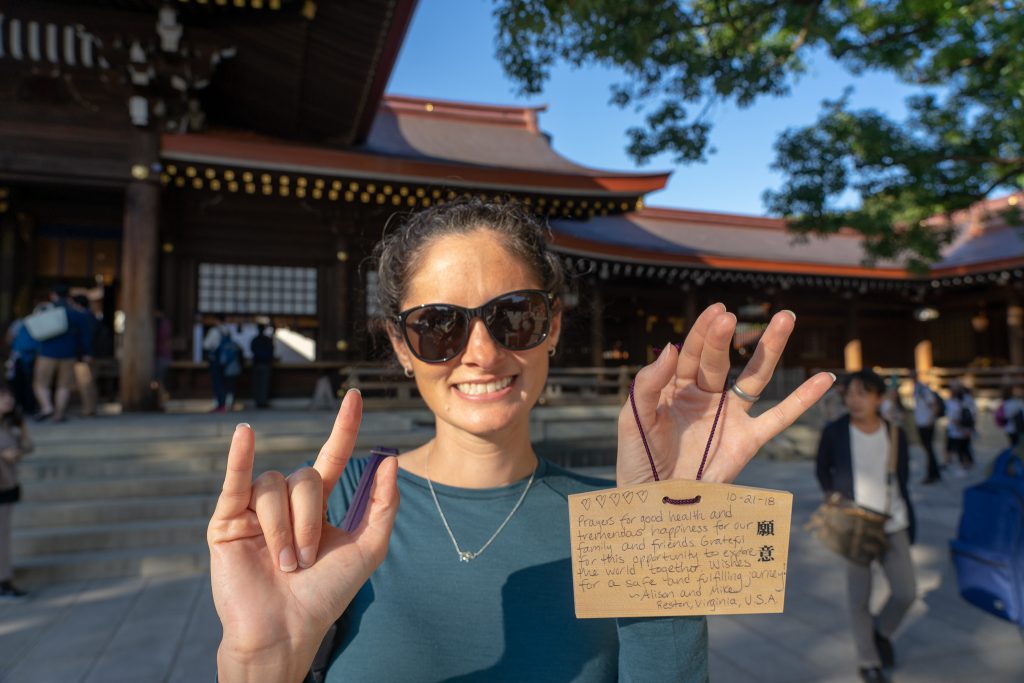 ♡♡♡♡♡ 10-21-18
Prayers for good health and
tremendous happiness for our
family and friends. Grateful
for this opportunity to explore
the world together. Wishes
for a safe and fulfilling journey!
~Alison and Mike
Reston, Virginia, U.S.A.
願意